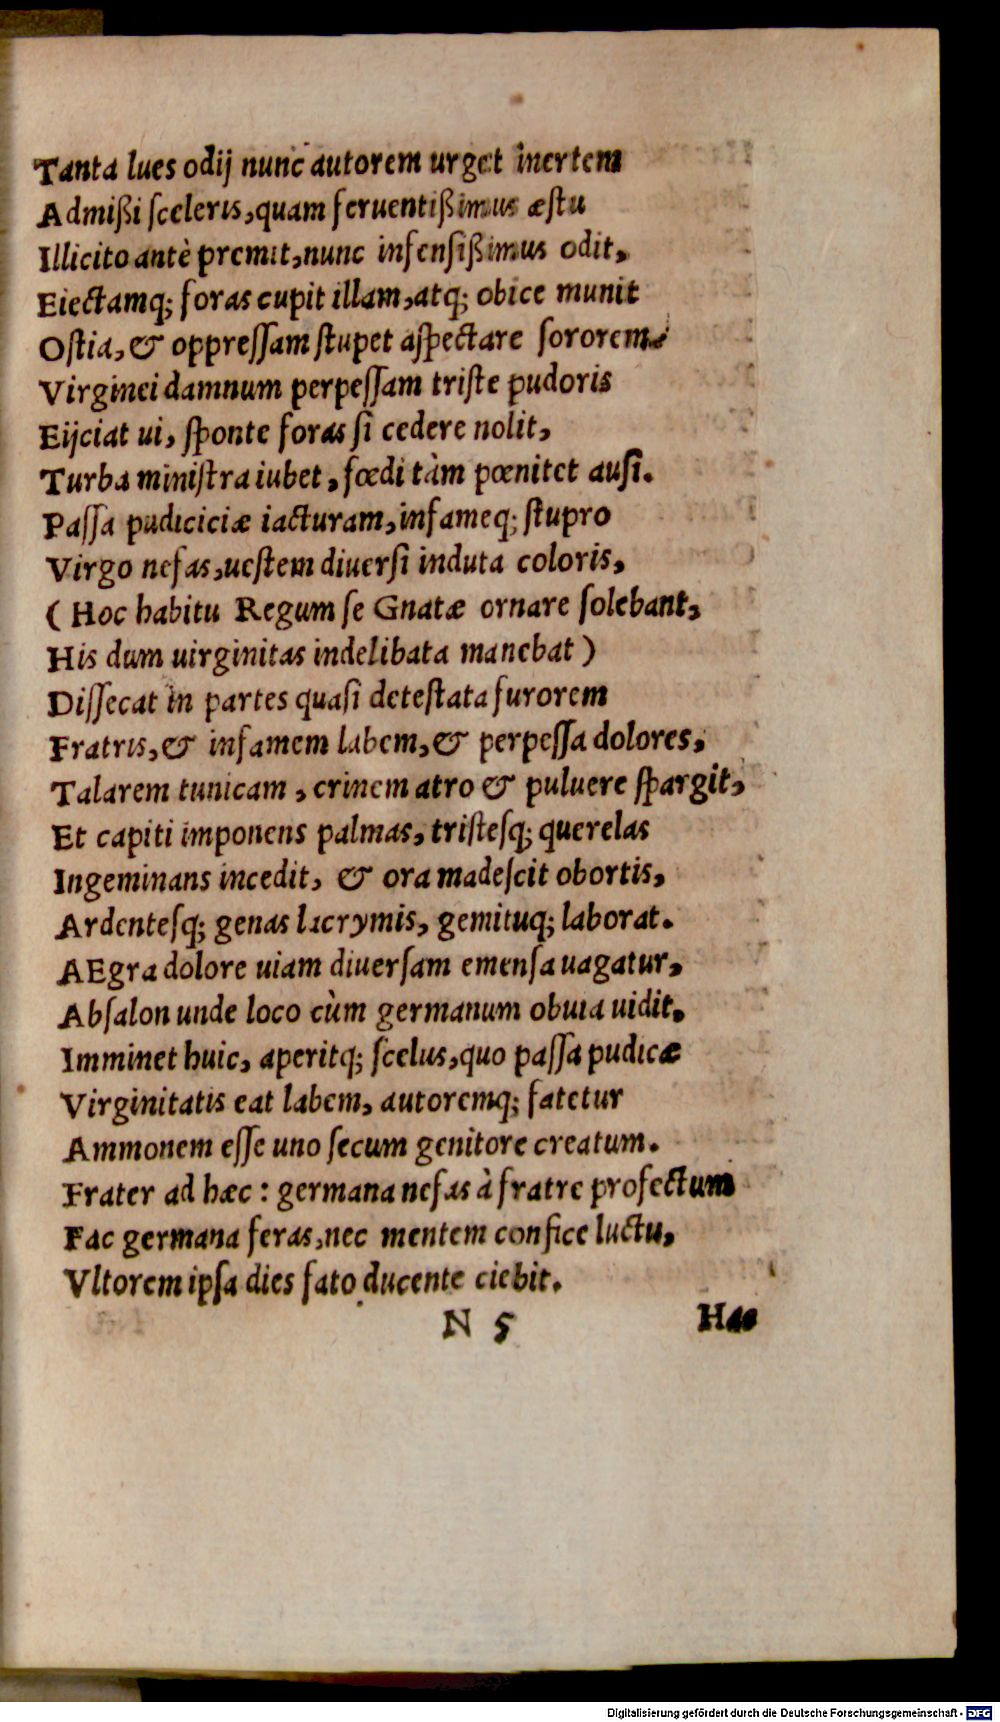 Tanta lues odij nunc autorem urget inertem
Admißi ſceleris, quam feruentißimus æſtu
Illicito antè premit, nunc infenſißimus odit,
Eiectamq; foras cupit illam, atq; obice munit
Oſtia, & oppreſſam ſtupet aſpectare ſororem.
Virginei damnum perpeſſam triſte pudoris
Eijciat ui, ſponte foras ſi cedere nolit,
Turba miniſtra iubet, fœdi tàm pœnitet auſi.
Paſſa pudiciciæ iacturam, infameq; ſtupro
Virgo nefas, ueſtem diuerſi induta coloris,
( Hoc habitu Regum ſe Gnatæ ornare ſolebant,
His dum uirginitas indelibata manebat )
Diſſecat in partes quaſi deteſtata furorem
Fratris, & infamem labem, & perpeſſa dolores,
Talarem tunicam , crinem atro & puluere ſpargit,
Et capiti imponens palmas, triſteſq; querelas
Ingeminans incedit, & ora madeſcit obortis,
Ardenteſq; genas lacrymis, gemituq; laborat.
AEgra dolore uiam diuerſam emenſa uagatur,
Abſalon unde loco cùm germanum obuia uidit.
Imminet huic, aperitq; ſcelus, quo paſſa pudicæ
Virginitatis eat labem, autoremq; fatetur
Ammonem eſſe uno ſecum genitore creatum.
Frater ad hæc : germana nefas à fratre profectum
Fac germana feras, nec mentem confice luctu,
Vltorem ipſa dies fato ducente ciebit.
N 5 Hae
Digitalisierung gefördert durch die Deutsche Forschungsgemeinschaft - DFG